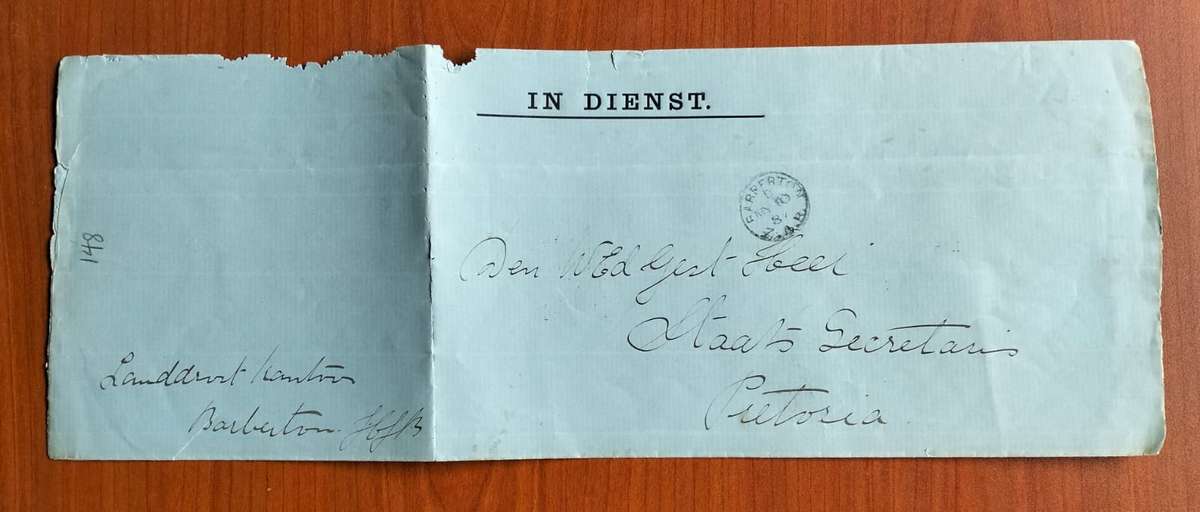 IN DIENST.
BARBERTON
Z.A.R.
Den WEd Gest Heer
Staats Secretaris
Pretoria
148
Landdrost Kantoor
Barberton